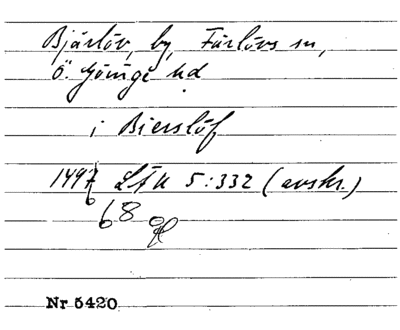 Bjärlöv, by, Färlövs sn,
Ö. Göinge hd
i Bierslöf
1497 LÄU 5:332 (avskr.)
68
Nr 5420